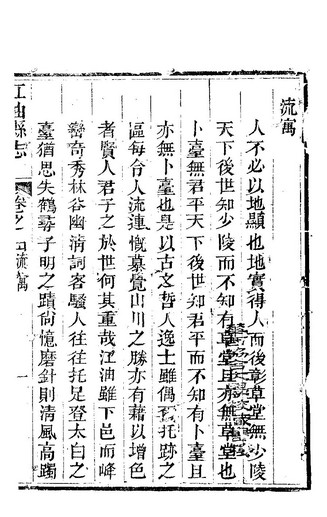 流寓
人不必以地顯也地實得人而後彰草堂無少陵
天下後世知少陵而不知有草堂且亦無草堂也
卜臺無君平天下後世知君平而不知有卜臺且
亦無卜臺也是以古文哲人逸士雖偶爾托跡之
區每令人流連慨慕覺山川之勝亦有藉以增色
者賢人君子之於世何其重哉江油雖下邑而峰
巒奇秀林谷幽淌詞客騷人往往托足登太白之
臺猶思失鶴尋子明之蹟尙憶磨針則清風高躅
江油縣志
卷之四流寓
一